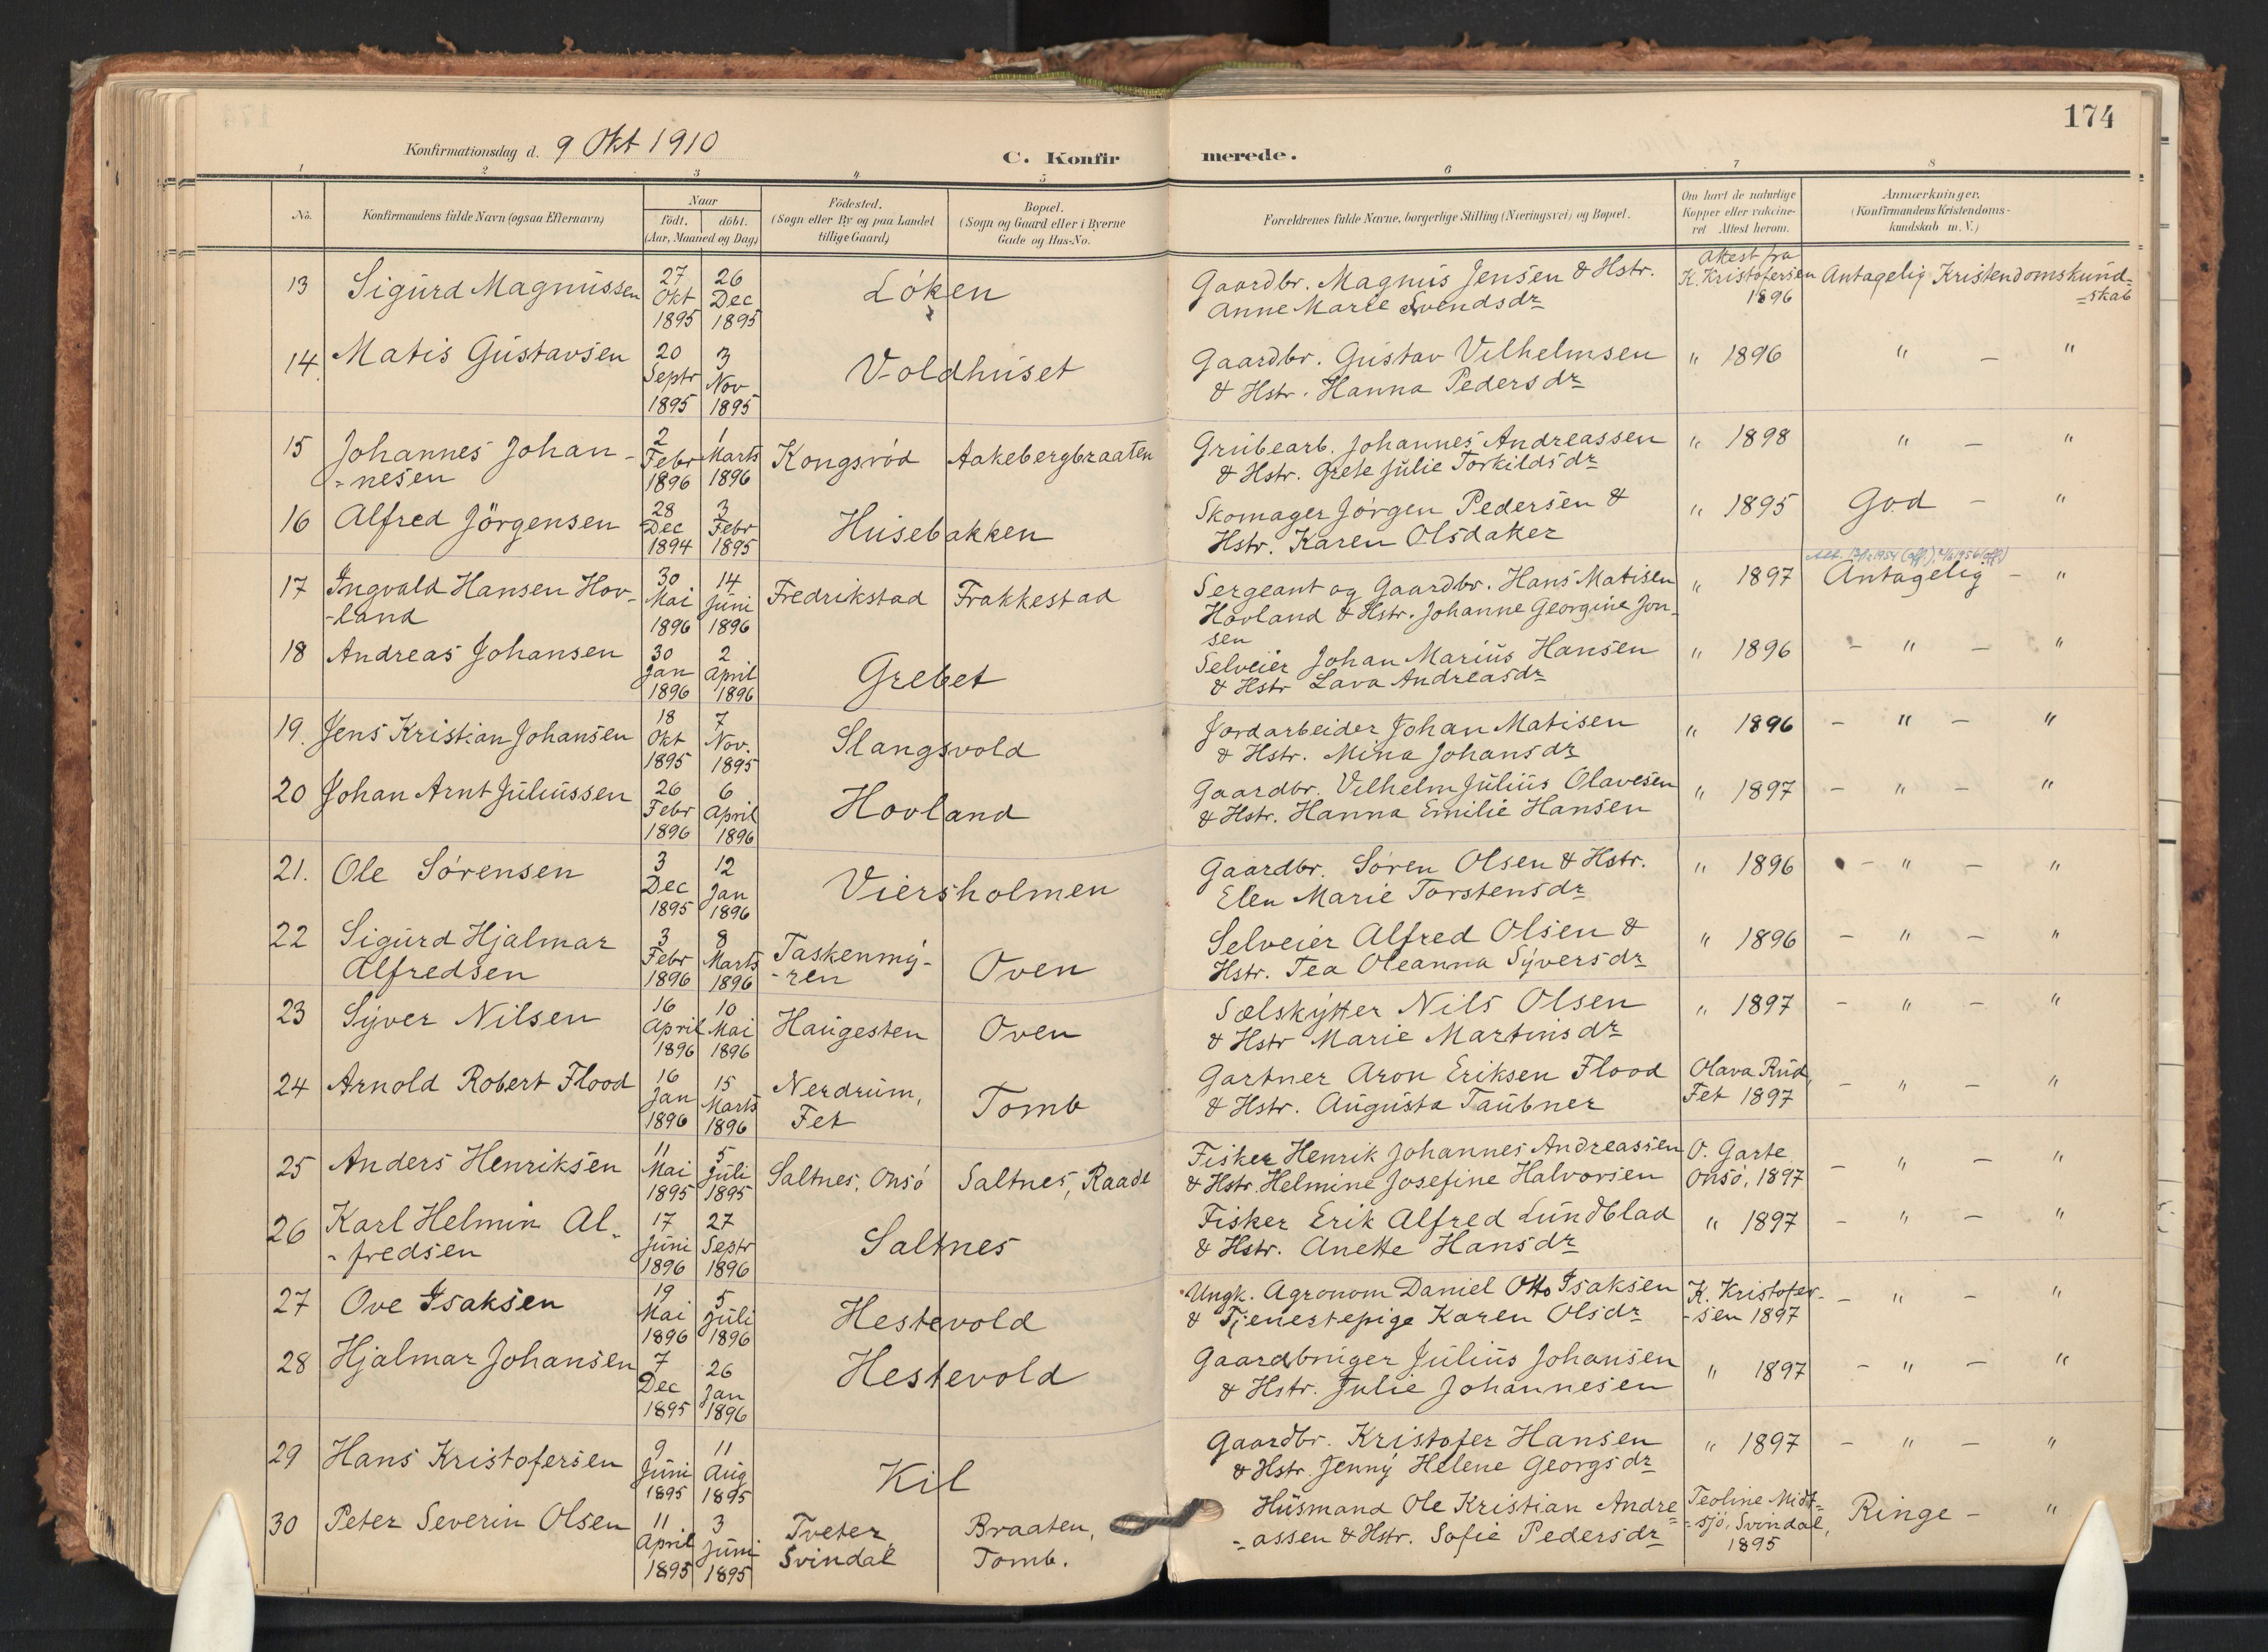 174
Konfirmationsdag d. 9 Okt 1910
C. Konfirmerede.
1 2 3 4 5 6 7 8
No. Konfirmandens fulde Navn (ogsaa Efternavn) Naar født. døbt. (Aar, Maaned og Dag) Fødested. (Sogn eller By og paa Landet tillige Gaard) Bopæl. (Sogn og Gaard eller i Byerne Gade og Hus-No. Forældrenes fulde Navne, borgerlige Stilling (Næringsvei) og Bopæl. Om havt de naturlige Kopper eller vakcineret Attest herom. Anmærkninger. (Konfirmandens Kristendomskundskab m. V.)
13 Sigurd Magnussen 27 Okt 1895 26 Dec 1895 Löken Gaardbr. Magnus Jensen & Hstr. Anne Marie Svendsdr Attest fra K. Kristofersen 1896 Antagelig Kristendomskund-=skab
14. Matis Gustavsen 20 Septr 1895 3 Nov 1895 Voldhuset Gaardbr. Gustav Vilhelmsen & Hstr. Hanna Pedersdr " 1896 " — "
15 Johannes Johan-=nesen 2 Febr 1896 1 Marts 1896 Kongsröd Aakebergbraaten Grubearb. Johannes Andreassen & Hstr. Grete Julie Torkildsdr " 1898 " — "
16 Alfred Jörgensen 28 Dec 1894 3 Febr 1895 Husebakken Skomager Jörgen Pedersen & Hstr. Karen Olsdatter " 1895 God — "
17 Ingvald Hansen Hov-land 30 Mai 1896 14 Juni 1896 Fredrikstad Frakkestad Sergeant og Gaardbr. Hans Matisen Hovland & Hstr. Johanne Georgine Jon-sen " 1897 Antagelig — "
18 Andreas Johansen 30 Jan 1896 2 April 1896 Grebet Selveier Johan Marius Hansen & Hstr Lava Andreasdr " 1896 — " — "
19. Jens Kristian Johansen 18 Okt 1895 7 Nov. 1895 Slangsvold Jordarbeider Johan Matisen & Hstr. Mina Johansdr " 1896 — " — "
20 Johan Arnt Juliussen 26 Febr 1896 6 April 1896 Hovland Gaardbr. Vilhelm Julius Olavesen & Hstr. Hanna Emilie Hansen " 1897 — " — "
21. Ole Sörensen 3 Dec 1895 12 Jan 1896 Viersholmen Gaardbr. Sören Olsen & Hstr. Elen Marie Torstensdr " 1896 — " — "
22 Sigurd Hjalmar Alfredsen 3 Febr 1896 8 Marts 1896 Taskenmy-ren Oven Selveier Alfred Olsen & Hstr. Tea Oleanna Syversdr " 1896 — " — "
23 Syver Nilsen 16 April 1896 10 Mai 1896 Haugesten Oven Sælskytter Nils Olsen & Hstr Marie Martinsdr " 1897 — " — "
24 Arnold Robert Flood 16 Jan 1896 15 Marts 1896 Nerdrum, Fet Tomb Gartner Aron Eriksen Flood & Hstr. Augusta Taubner Olava Rud, Fet 1897 — " — "
25 Anders Henriksen 11 Mai 1895 5 Juli 1895 Saltnes, Onsö Saltnes, Raade Fisker Henrik Johannes Andreassen & Hstr. Helmine Josefine Halvorsen O. Garte Onsö, 1897 — " — "
26 Karl Helmin Al-fredsen 17 Juni 1896 27 Septr 1896 Saltnes Fisker Erik Alfred Lundblad & Hstr. Anette Hansdr " 1897 — " — "
27 Ove Isaksen 19 Mai 1896 5 Juli 1896 Hestevold Ungk. Agronom Daniel Otto Isaksen & Tjenestepige Karen Olsdr K. Kristofer-sen 1897 — " — "
28 Hjalmar Johansen 7 Dec 1895 26 Jan 1896 Hestevold Gaardbruger Julius Johansen & Hstr. Julie Johannesen " 1897 — " — "
29 Hans Kristofersen 9 Juni 1895 11 Aug 1895 Kil Gaardbr. Kristofer Hansen & Hstr. Jenny Helene Georgsdr " 1897 — " — "
30 Peter Severin Olsen 11 April 1895 3 Juni 1895 Tveter, Svindal Braaten, Tomb. Husmand Ole Kristian Andre=assen & Hstr. Sofie Pedersdr Teoline Midt=sjö, Svindal, 1895 Ringe — "